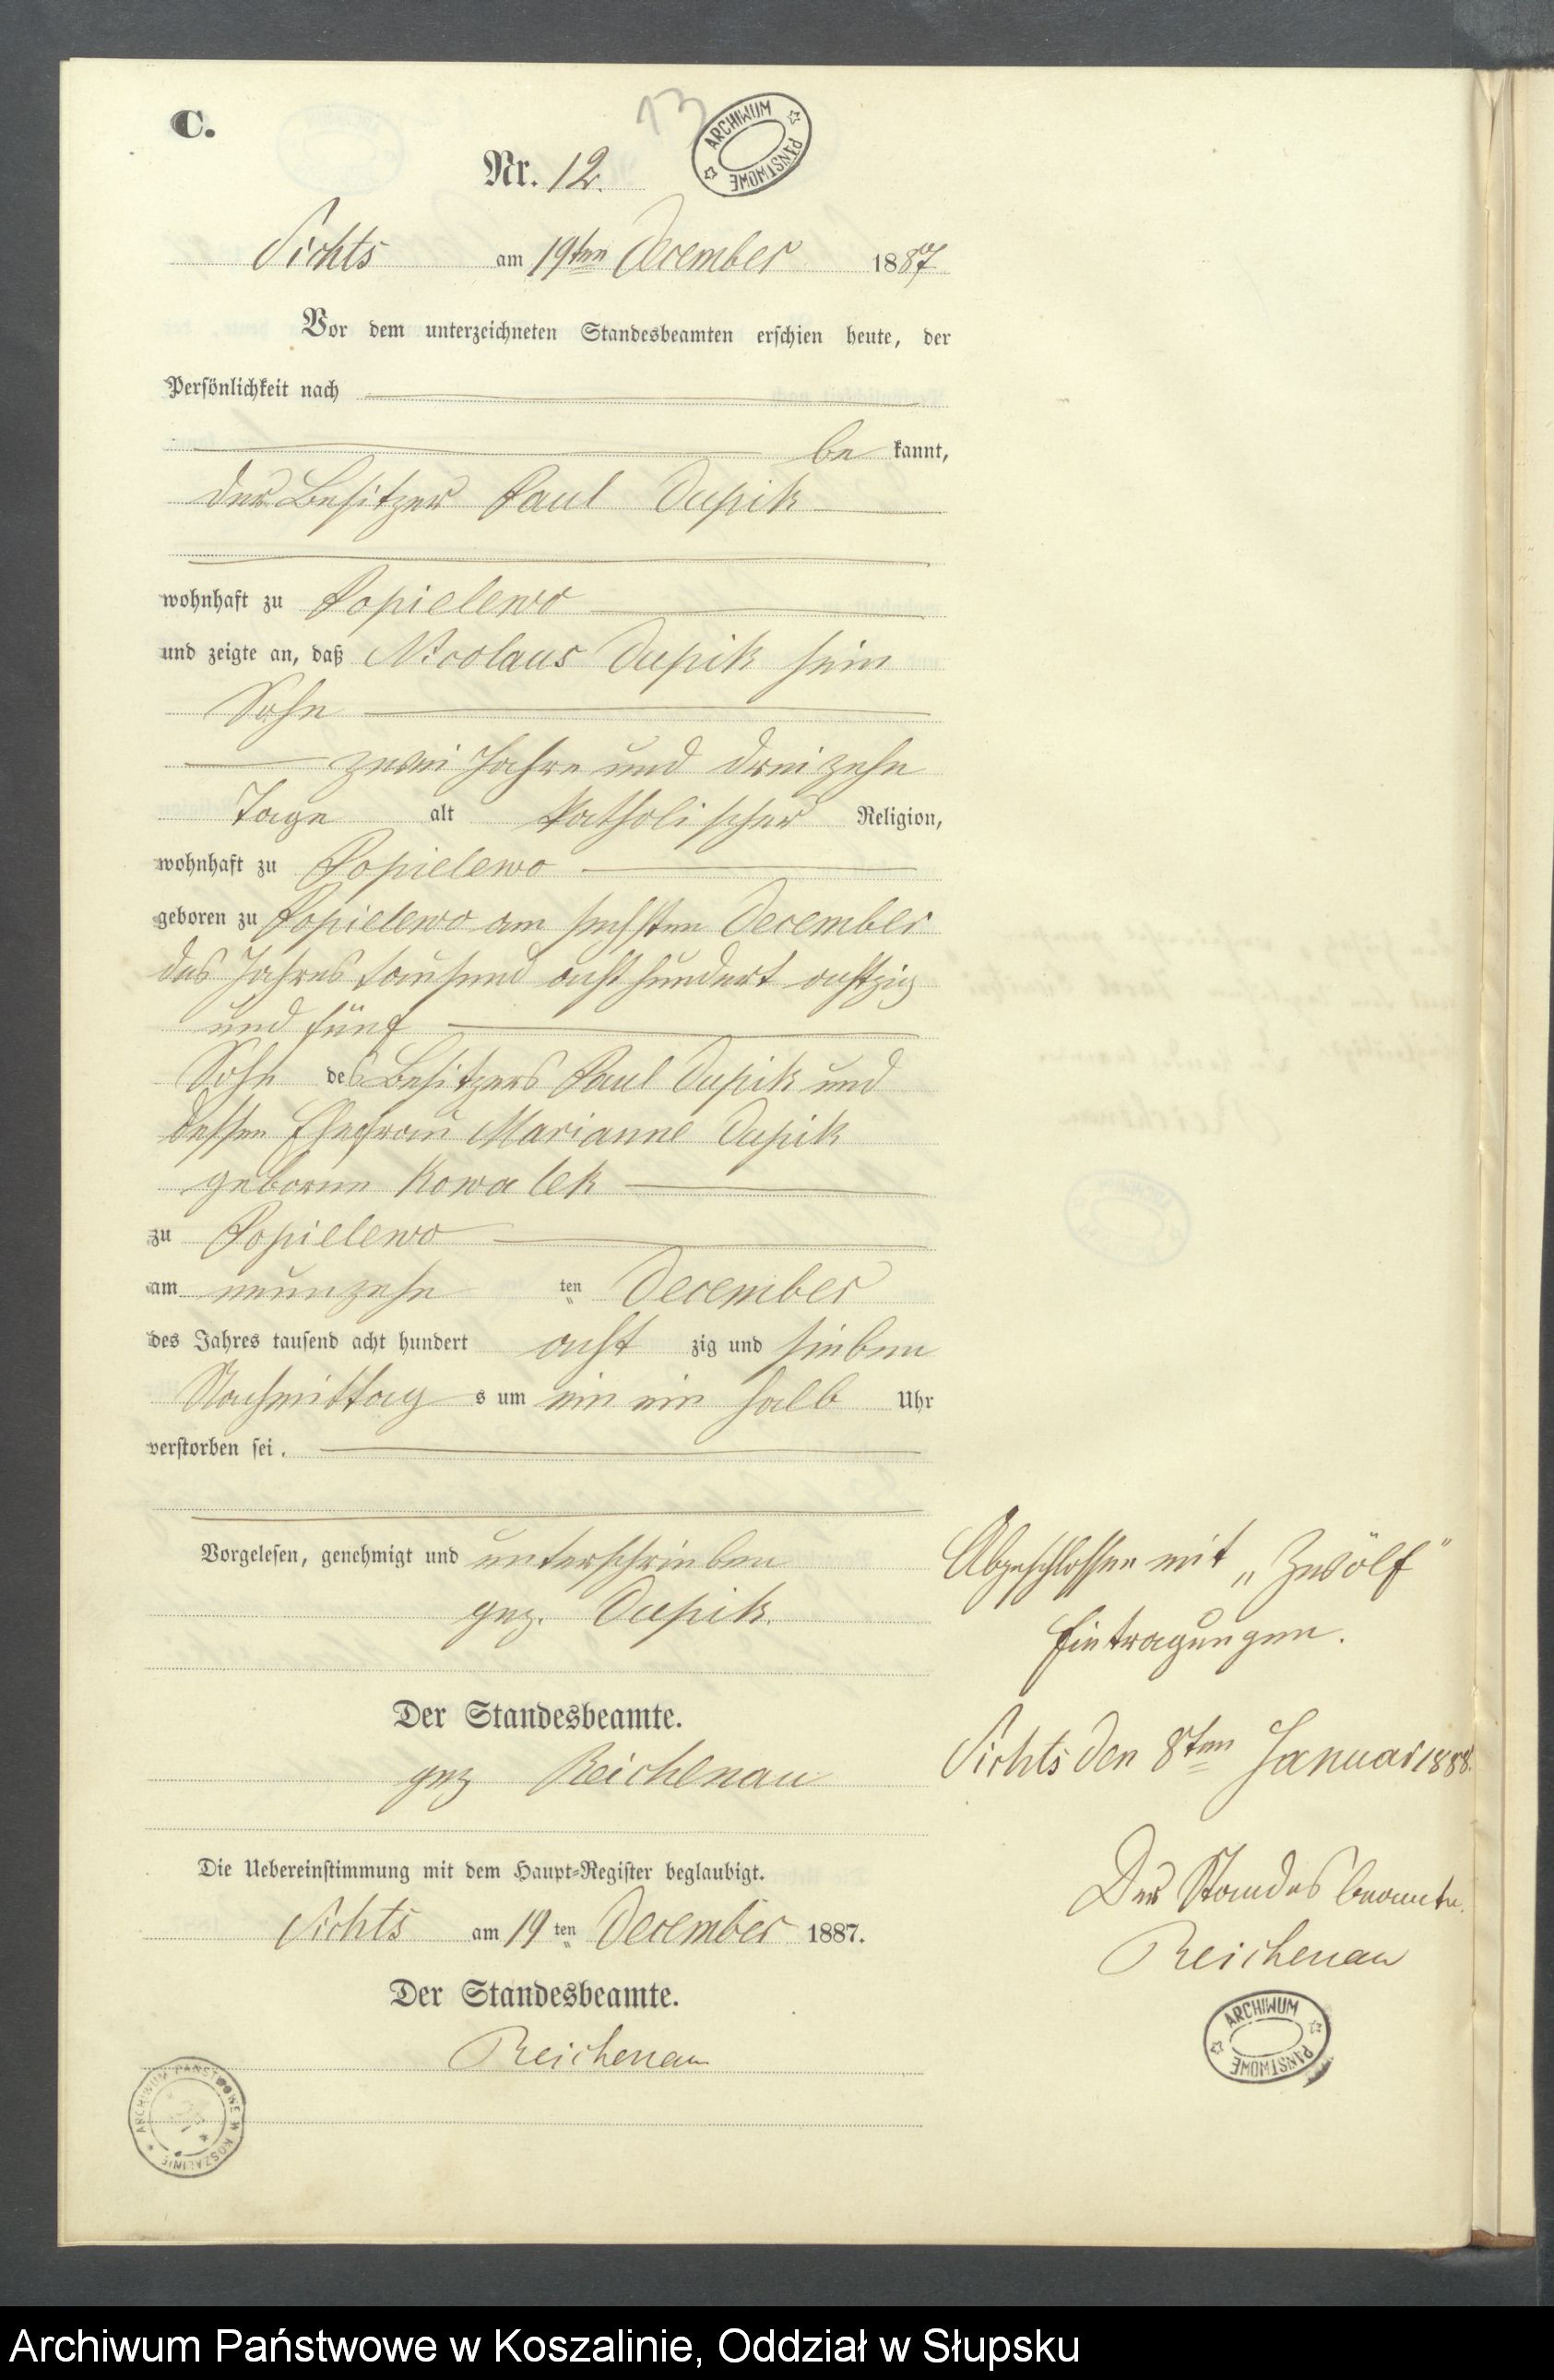 C.
13
ARCHIWUM PAŃSTWOWE
Nr. 12.
Sichts am 19ten December 1887
Vor dem unterzeichneten Standesbeamten erschien heute, der
Persönlichkeit nach
be kannt,
der Besitzer Paul Dupik
wohnhaft zu Popielewo
und zeigte an, daß Nicolaus Dupik sein
Sohn
zwei Jahre und dreizehn
Tage alt katholischer Religion,
wohnhaft zu Popielewo
geboren zu Popielewo am sechsten December
des Jahres tausend achthundert achtzig
und fünf
Sohn des Besitzers Paul Dupik und
dessen Ehefrau Marianne Dupik
geborne Kowalek
zu Popielewo
am neunzehn ten December
des Jahres tausend acht hundert acht zig und sieben
Nachmittag s um ein ein halb Uhr
verstorben sei.
Vorgelesen, genehmigt und unterschrieben
gez. Dupik.
Der Standesbeamte.
gez Reichenau
Die Uebereinstimmung mit dem Haupt-Register beglaubigt.
Sichts am 19 ten December 1887.
Der Standesbeamte.
Reichenau
ARCHIWUM PAŃSTWOWE W KOSZALINIE
Abgeschlossen mit „Zwölf"
Eintragungen.
Sichts den 8ten Januar 1888.
Der Standesbeamte.
Reichenau
ARCHIWUM PAŃSTWOWE
Archiwum Państwowe w Koszalinie, Oddział w Słupsku